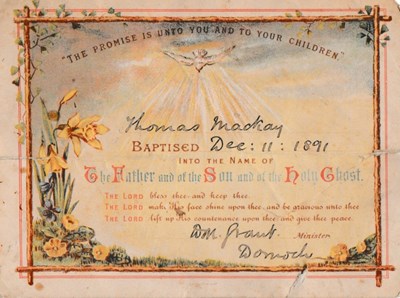 "THE PROMISE IS UNTO YOU AND TO YOUR CHILDREN"
Thomas Mackay
BAPTISED Dec: 11: 1891
INTO THE NAME OF
The Father and of the Son and of the Holy Ghost.
THE LORD bless thee and keep thee.
THE LORD make His face shine upon thee, and be gracious unto thee
THE LORD lift up His countenance upon thee, and give thee peace.
DM. Grant. Minister
Dornoch